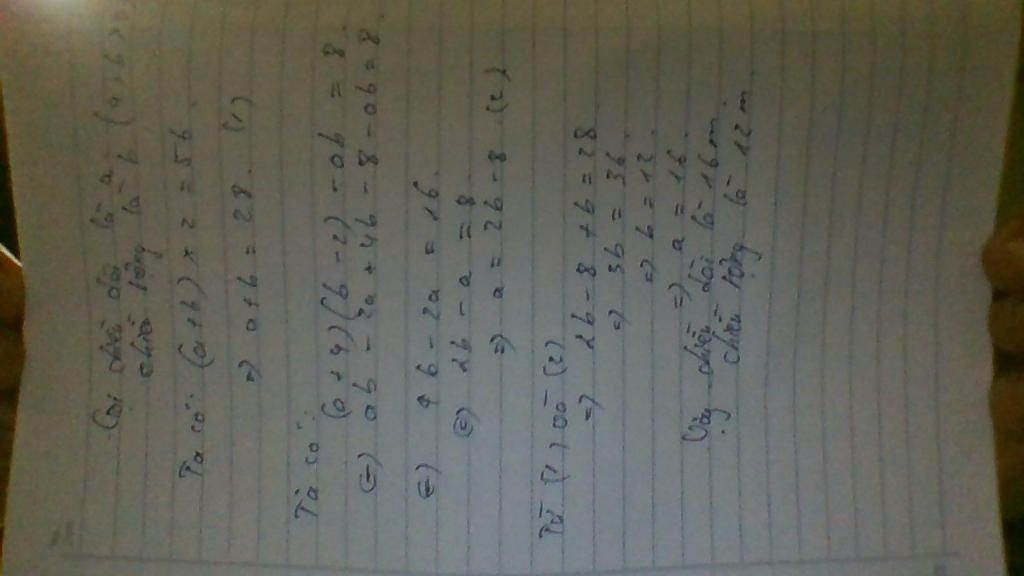 Gọi chiều dài là a
chiều rộng là b (a > b >
Ta có: (a+b) x 2 = 56
=> a+b = 28 (1)
Ta có:
(a+4)(b-2) - ab = 8
<=> ab - 2a + 4b - 8 - ab = 8
<=> 4b - 2a = 16
<=> 2b - a = 8
=> a = 2b - 8 (2)
Từ (1) và (2)
=> 2b - 8 + b = 28
=> 3b = 36
=> b = 12
=> a = 16
Vậy chiều dài là 16 m
chiều rộng là 12 m